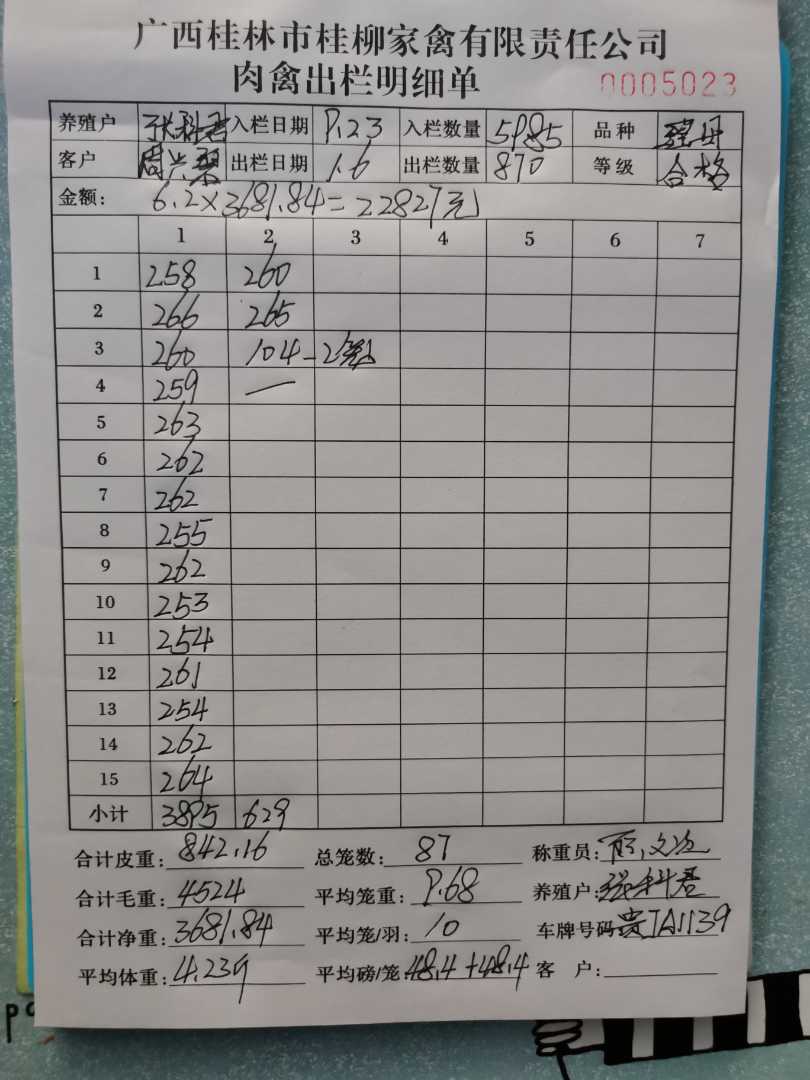 广西桂林市桂柳家禽有限责任公司
肉禽出栏明细单 0005023
养殖户 张科君 入栏日期 9.23 入栏数量 5985 品种
客户 周兴翠 出栏日期 1.6 出栏数量 870 等级 合格
金额: 6.2×3681.84=22827元
1 2 3 4 5 6 7
1 258 260
2 266 265
3 260 104-2笼
4 259 —
5 263
6 262
7 262
8 255
9 262
10 253
11 254
12 261
13 254
14 262
15 264
小计 3895 629
合计皮重: 842.16 总笼数: 87 称重员:
合计毛重: 4524 平均笼重: 9.68 养殖户: 张科君
合计净重: 3681.84 平均笼/羽: 10 车牌号码 贵JA1139
平均体重: 4.239 平均磅/笼 48.4+48.4 客 户: